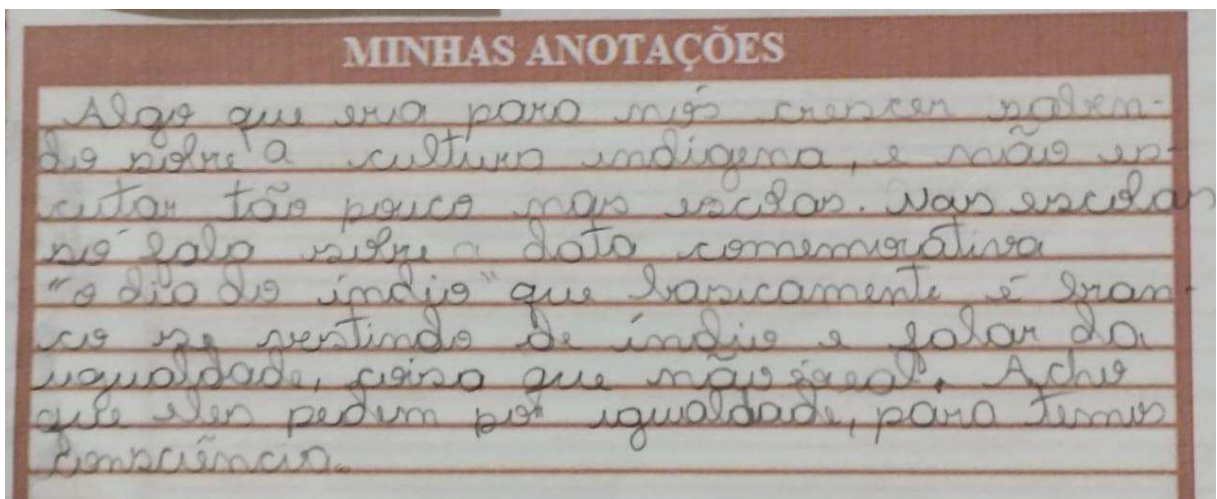 MINHAS ANOTAÇÕES
Algo que era para nós crescer saben-
do sobre a cultura indigena, e não es-
cutar tão pouco nas escolas. Nas escolas
só fala sobre a data comemorativa
"o dia do índio" que basicamente é bran-
co se vestindo de índio e falar da
igualdade, coisa que não é real. Acho
que eles pedem por igualdade, para temos
consciência.